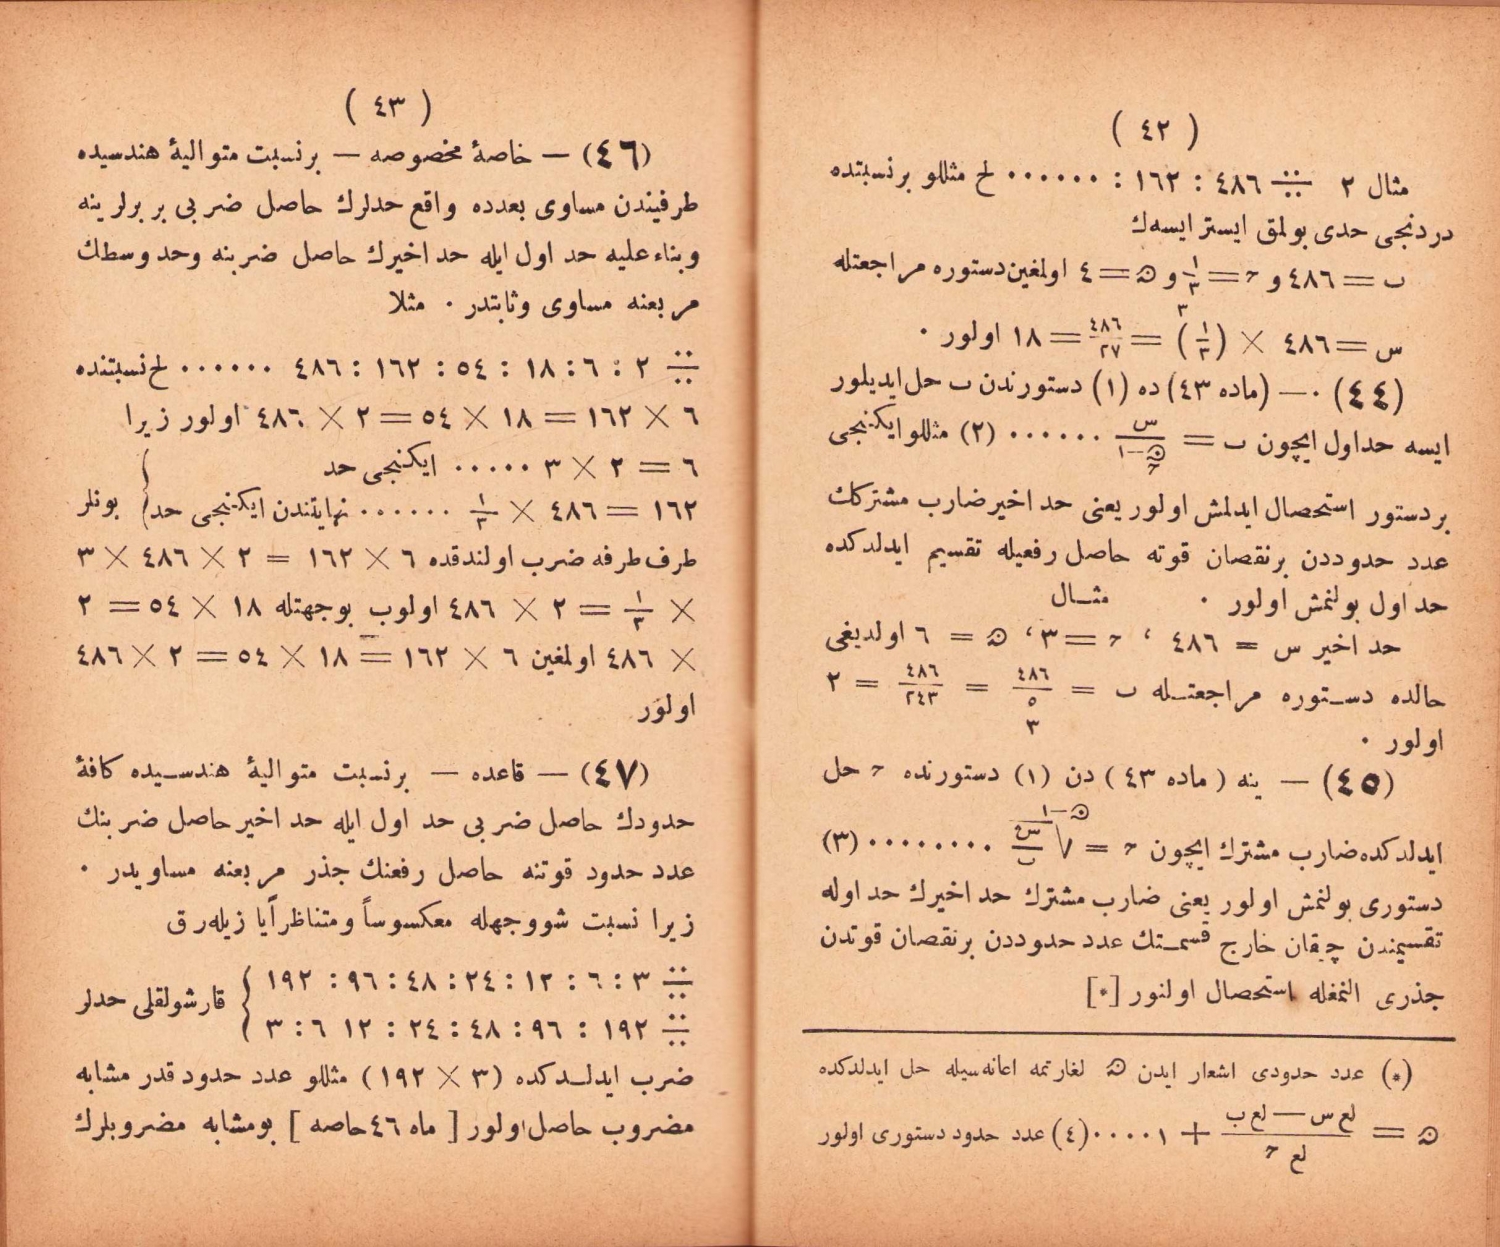 ( ٤٢ )
مثال ٢ ∺ ٤٨٦ : ١٦٢ : ...... لخ مثللو برنسبتده
دردنجی حدی بولمق ایستر ایسه‌ك
ب = ٤٨٦ و ح = ١/٣ و ﻫ = ٤ اولمغین دستوره مراجعتله
س = ٤٨٦ × (١/٣)٣ = ٤٨٦/٢٧ = ١٨ اولور .
(٤٤) — (ماده ٤٣) ده (١) دستورندن ب حل ایدیلور
ایسه حد اول ایچون ب = س/ح ﻫ−١ ...... (٢) مثللو ایكنجی
بر دستور استحصال ایدلمش اولور یعنی حد اخیر ضارب مشتركك
عدد حدوددن برنقصان قوته حاصل رفعیله تقسیم ایدلدكده
حد اول بولنمش اولور . مثــال
حد اخیر س = ٤٨٦ ، ح = ٣ ، ﻫ = ٦ اولدیغی
حالده دستوره مراجعتــله ب = ٤٨٦/٣٥ = ٤٨٦/٢٤٣ = ٢
اولور .
(٤٥) — ینه ( ماده ٤٣ ) دن (١) دستورنده ح حل
ایدلدكده ضارب مشترك ایچون ح = ﻫ−١√ س/ب ......... (٣)
دستوری بولنمش اولور یعنی ضارب مشترك حد اخیرك حد اوله
تقسیمندن چیقان خارج قسمتك عدد حدوددن برنقصان قوتدن
جذری النمغله استحصال اولنور [*]
(*) عدد حدودی اشعار ایدن ﻫ لغارتمه اعانه‌سیله حل ایدلدكده
ﻫ = لع س — لع ب/لع ح + ١ .....(٤) عدد حدود دستوری اولور
( ٤٣ )
(٤٦) — خاصهٔ مخصوصه — برنسبت متوالیهٔ هندسیده
طرفیندن مساوی بعدده واقع حدلرك حاصل ضربی بربرلرینه
وبناء علیه حد اول ایله حد اخیرك حاصل ضربنه وحد وسطك
مربعنه مساوی وثابتدر . مثلا
∺ ٢ : ٦ : ١٨ : ٥٤ : ١٦٢ : ٤٨٦ ...... لخ نسبتنده
٦ × ١٦٢ = ١٨ × ٥٤ = ٢ × ٤٨٦ اولور زیرا
٦ = ٢ × ٣ ..... ایكنجی حد
١٦٢ = ٤٨٦ × ١/٣ ...... نهایتندن ایكنجی حد } بونلر
طرف طرفه ضرب اولندقده ٦ × ١٦٢ = ٢ × ٤٨٦ × ٣
× ١/٣ = ٢ × ٤٨٦ اولوب بوجهتله ١٨ × ٥٤ = ٢
× ٤٨٦ اولمغین ٦ × ١٦٢ = ١٨ × ٥٤ = ٢ × ٤٨٦
اولور
(٤٧) — قاعده — برنسبت متوالیهٔ هندسیده كافهٔ
حدودك حاصل ضربی حد اول ایله حد اخیر حاصل ضربنك
عدد حدود قوتنه حاصل رفعنك جذر مربعنه مساویدر .
زیرا نسبت شووجهله معكسوساً ومتناظراً یازیله‌رق
∺ ٣ : ٦ : ١٢ : ٢٤ : ٤٨ : ٩٦ : ١٩٢
∺ ١٩٢ : ٩٦ : ٤٨ : ٢٤ : ١٢ ٦ : ٣ } قارشولقلی حدلر
ضرب ایدلــدكده (٣ × ١٩٢) مثللو عدد حدود قدر مشابه
مضروب حاصل اولور [ ماه ٤٦ حاصه ] بومشابه مضروبلرك